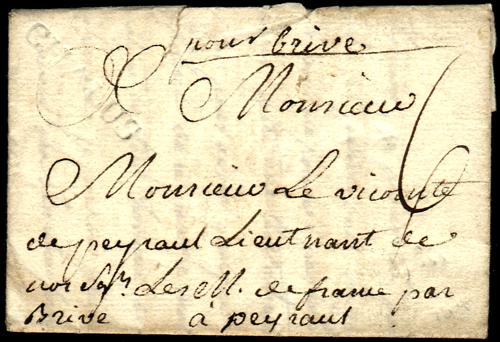 pour brive
Monsieur
Monsieur Le vicomte
de peyraul Lieutnant de
nos Sgrs. Les M. de france par
Brive à peyraut